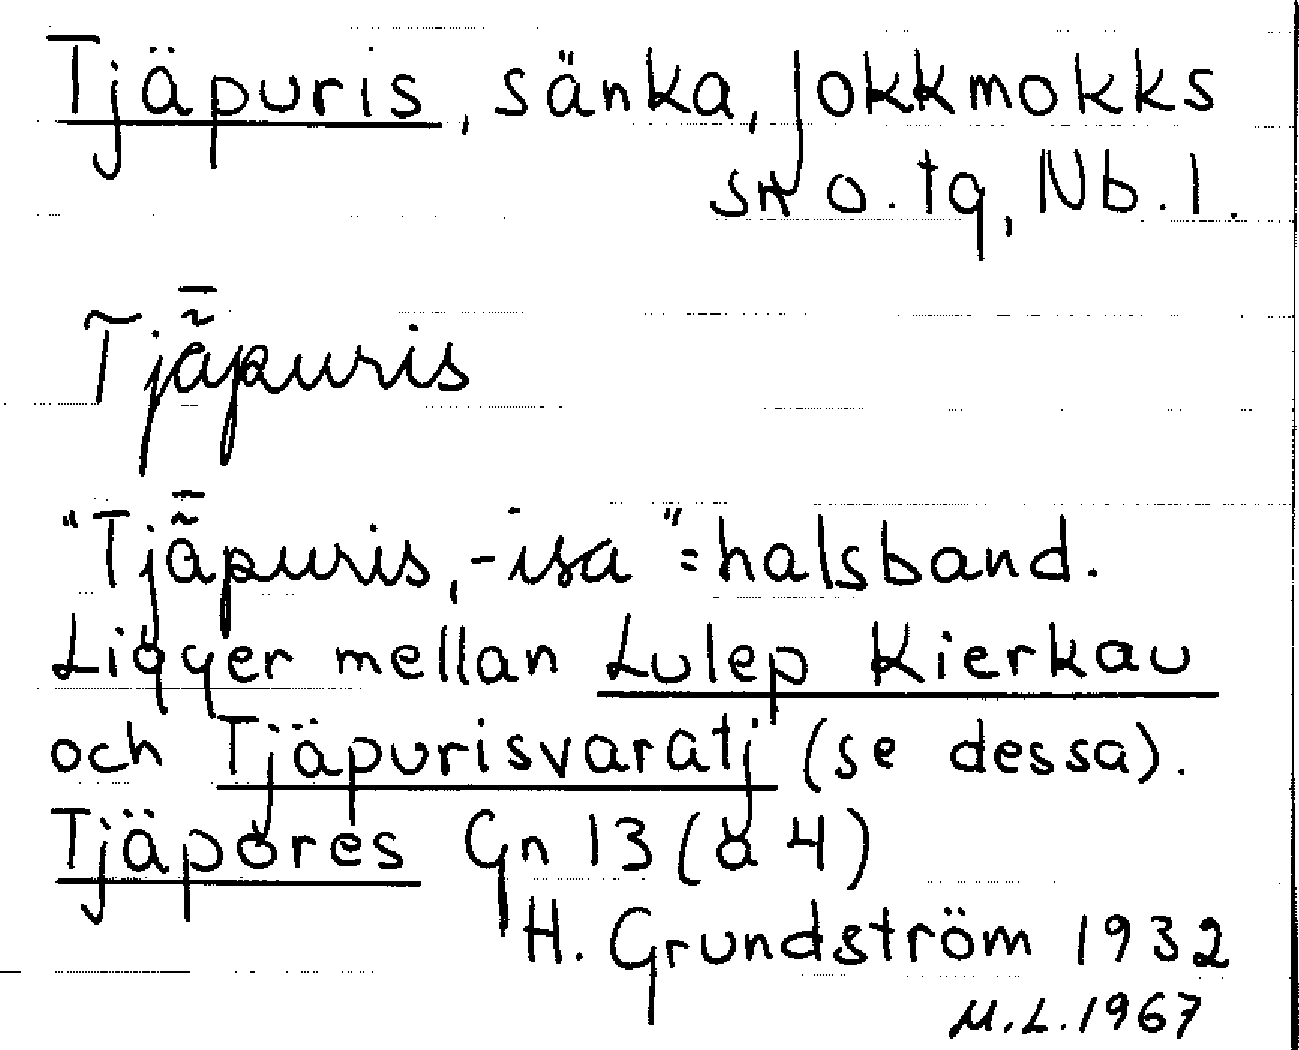 Tjäpuris, sänka, Jokkmokks
sn o. tg, Nb. l.
Tjä̃̄puris
"Tjä̃̄puris, -isa" = halsband.
Ligger mellan Lulep Kierkau
och Tjäpurisvaratj (se dessa).
Tjäpores Gn 13 (a 4)
H. Grundström 1932
M.L. 1967